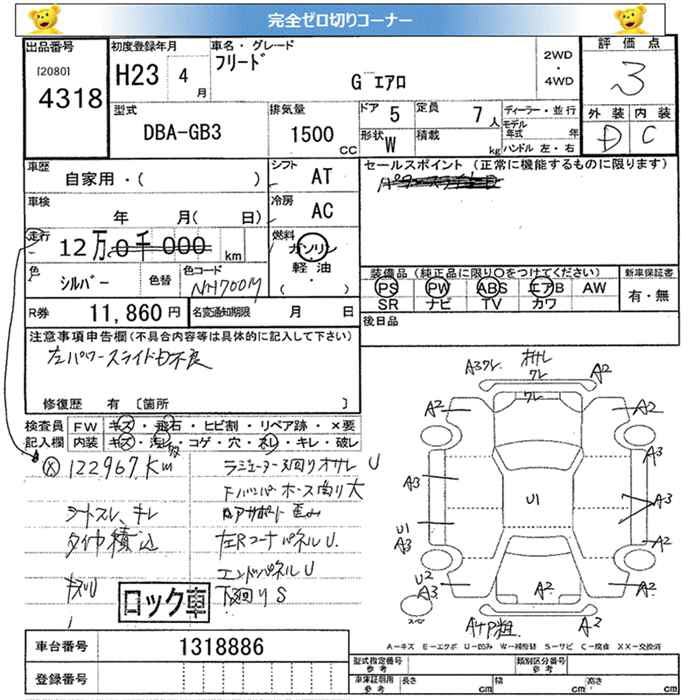 完全ゼロ切りコーナー
出品番号
[2080]
4318
初度登録年月
H23 4月
車名・グレード
フリード
G エアロ
2WD
・
4WD
評価点
3
外装 内装
D C
型式
DBA-GB3
排気量
1500 CC
ドア 5
定員 7人
形状 W
積載 kg
ディーラー・並行
モデル年式 年
ハンドル 左・右
車歴
自家用・( )
シフト
AT
セールスポイント (正常に機能するものに限ります)
パワースライド
車検
年 月( 日)
冷房
AC
走行
12万0千000 km
燃料
ガソリン
軽油
( ・ )
色
シルバー
色替
色コード
NH700M
装備品 (純正品に限り〇をつけてください)
PS PW ABS エアB AW
SR ナビ TV カワ
新車保証書
有・無
R券 11,860円
名変通知期限 月 日
後日品
注意事項申告欄 (不具合内容等は具体的に記入して下さい)
左パワースライド不良
修復歴 有 [箇所 ]
検査員記入欄
FW キズ・飛石・ヒビ割・リペア跡・×要
内装 キズ・汚レ・コゲ・穴・スレ・キレ・破レ
122967Km
ラジエーター廻りオサレ U
シートスレ、キレ
タイヤ積込
左Rコーナーパネル U.
キズU
エンドパネル U
下廻り S
ロック車
A3ワレ オサレ ワレ A2
ワレ
A2 A2
A3 A3
A3
U1
U1
A3
A2
U2
A3
A2 A2
スペア
A2
A=キズ E=エクボ U=凹み W=補修跡 S=サビ C=腐食 XX=交換済
車台番号
1318886
登録番号
型式指定番号 参考
類別区分番号 参考
車庫証明用 参考
長さ cm
幅 cm
高さ cm